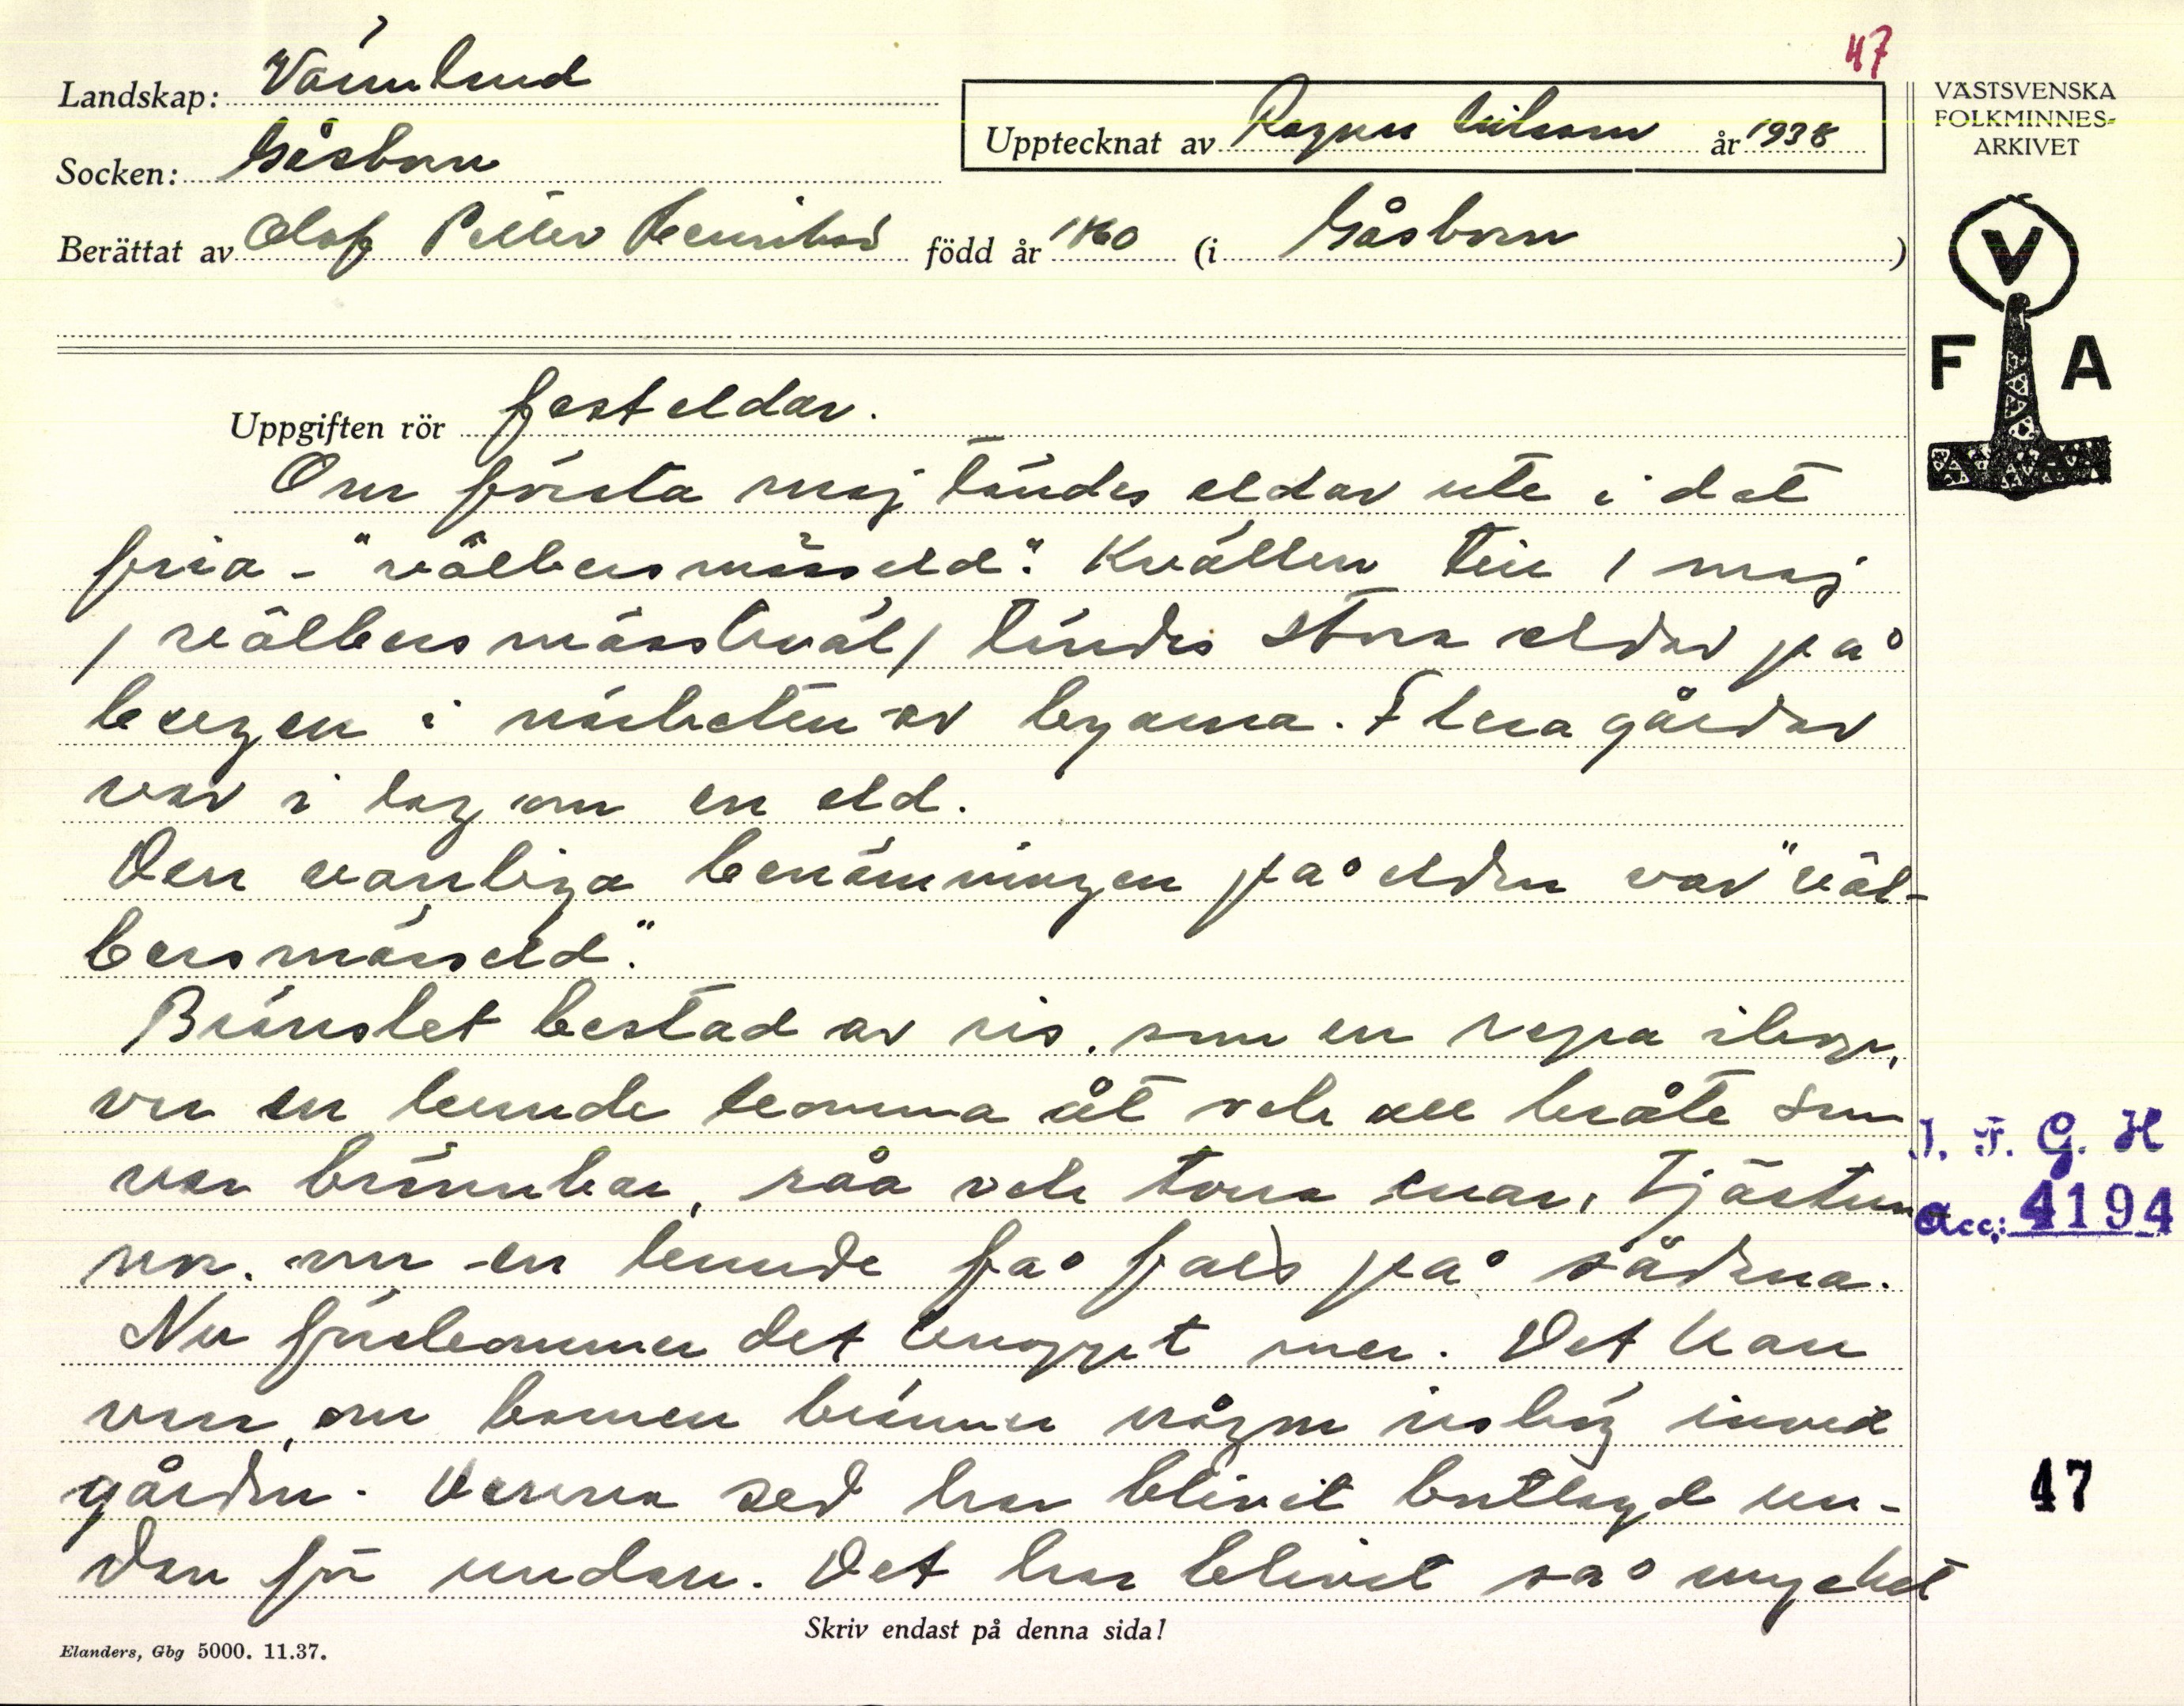 47
Landskap: Värmland
VÄSTSVENSKA
FOLKMINNES-
ARKIVET
Upptecknat av Ragnar Nilsson år 1938
Socken: Gåsborn
Berättat av Olof Petter Henriksd född år 1860 (i Gåsborn )
V
F A
Uppgiften rör festeldar.
Om första maj tändes eldar ute i det
fria - "vålbersmässeld". Kvällen till 1 maj
/ vålbersmässkväl / tändes stora eldar på
bergen i närheten av byarna. Flera gårdar
var i lag om en eld.
Den vanliga benämningen på elden var "vål-
bersmässeld".
Bränslet bestod av ris, som en rapa ihop,
om en kunde komma åt och all bråte som
var brännbar, råa och torra enar, tjärtunnor
om en kunde få fatt på sådana.
Nu förekommer det knappt mer. Det kan
vara, om barnen bränner någon rishög invid
gården. Denna sed har blivit bortlagd un-
dan för undan. Det har blivit så mycket
J. F. G. H
Acc: 4194
47
Skriv endast på denna sida!
Elanders, Gbg 5000. 11.37.